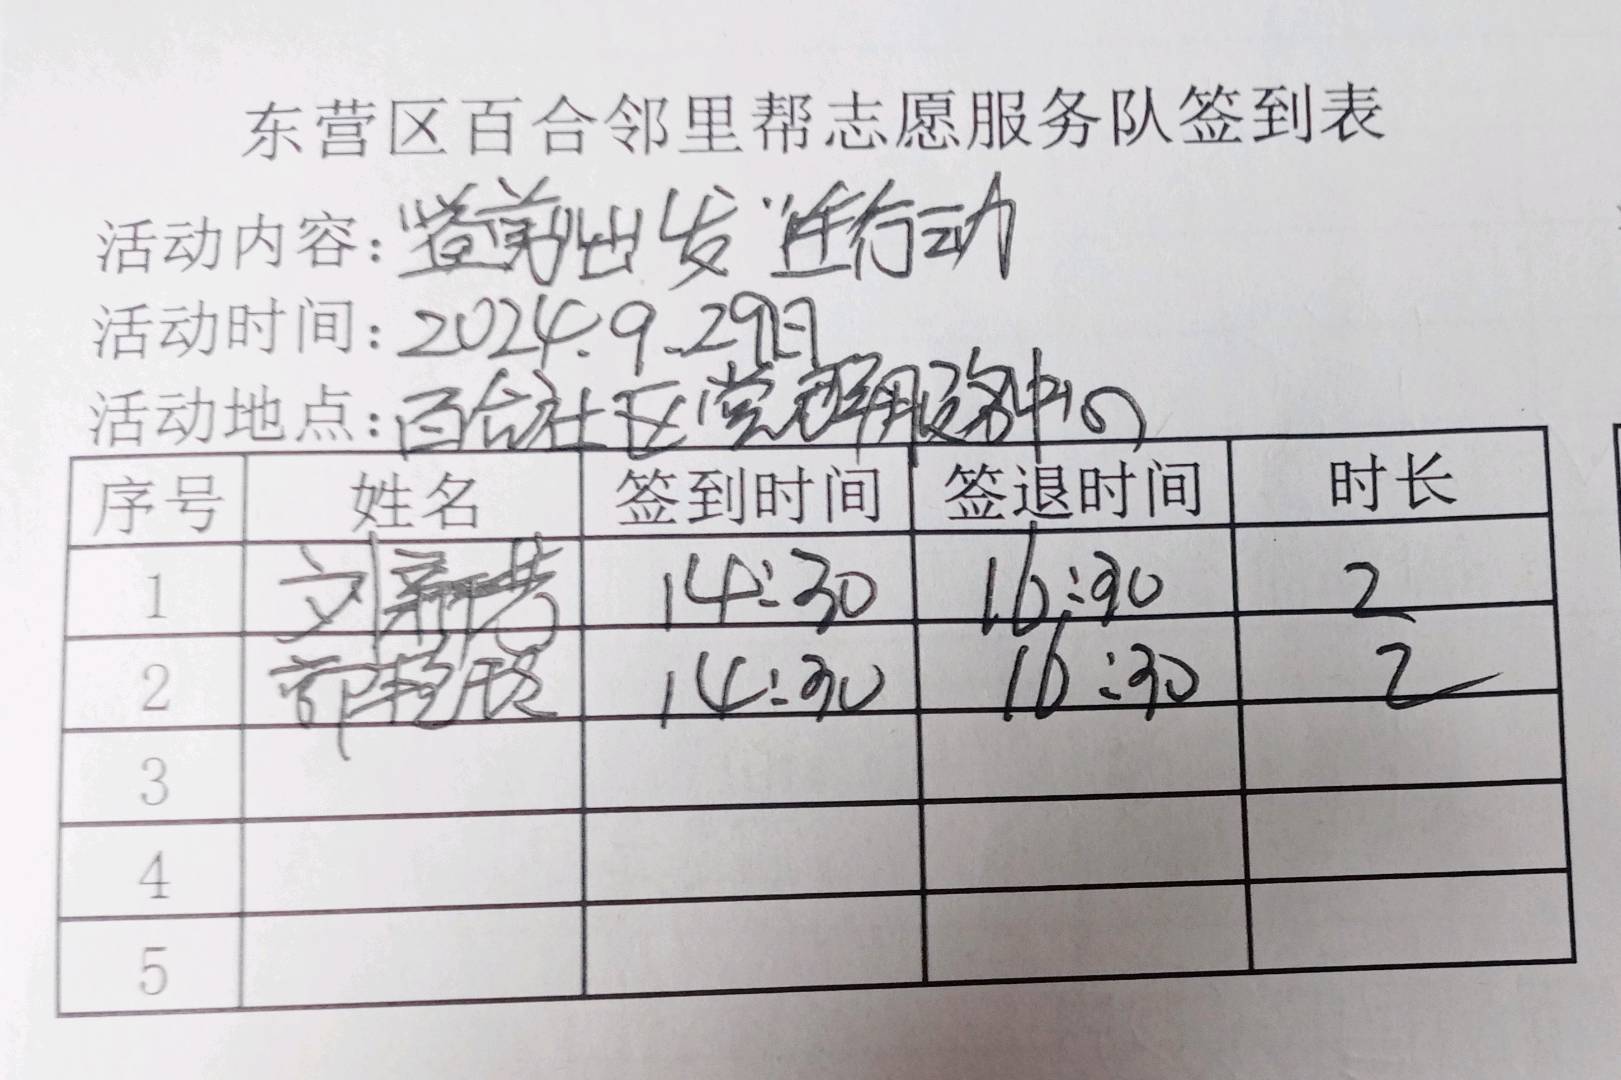 东营区百合邻里帮志愿服务队签到表
活动内容：出发 行动
活动时间：2024.9.29日
活动地点：百合社区党群服务中心
序号 姓名 签到时间 签退时间 时长
1 刘新芳 14:30 16:30 2
2 郭艳 14:30 16:30 2
3
4
5